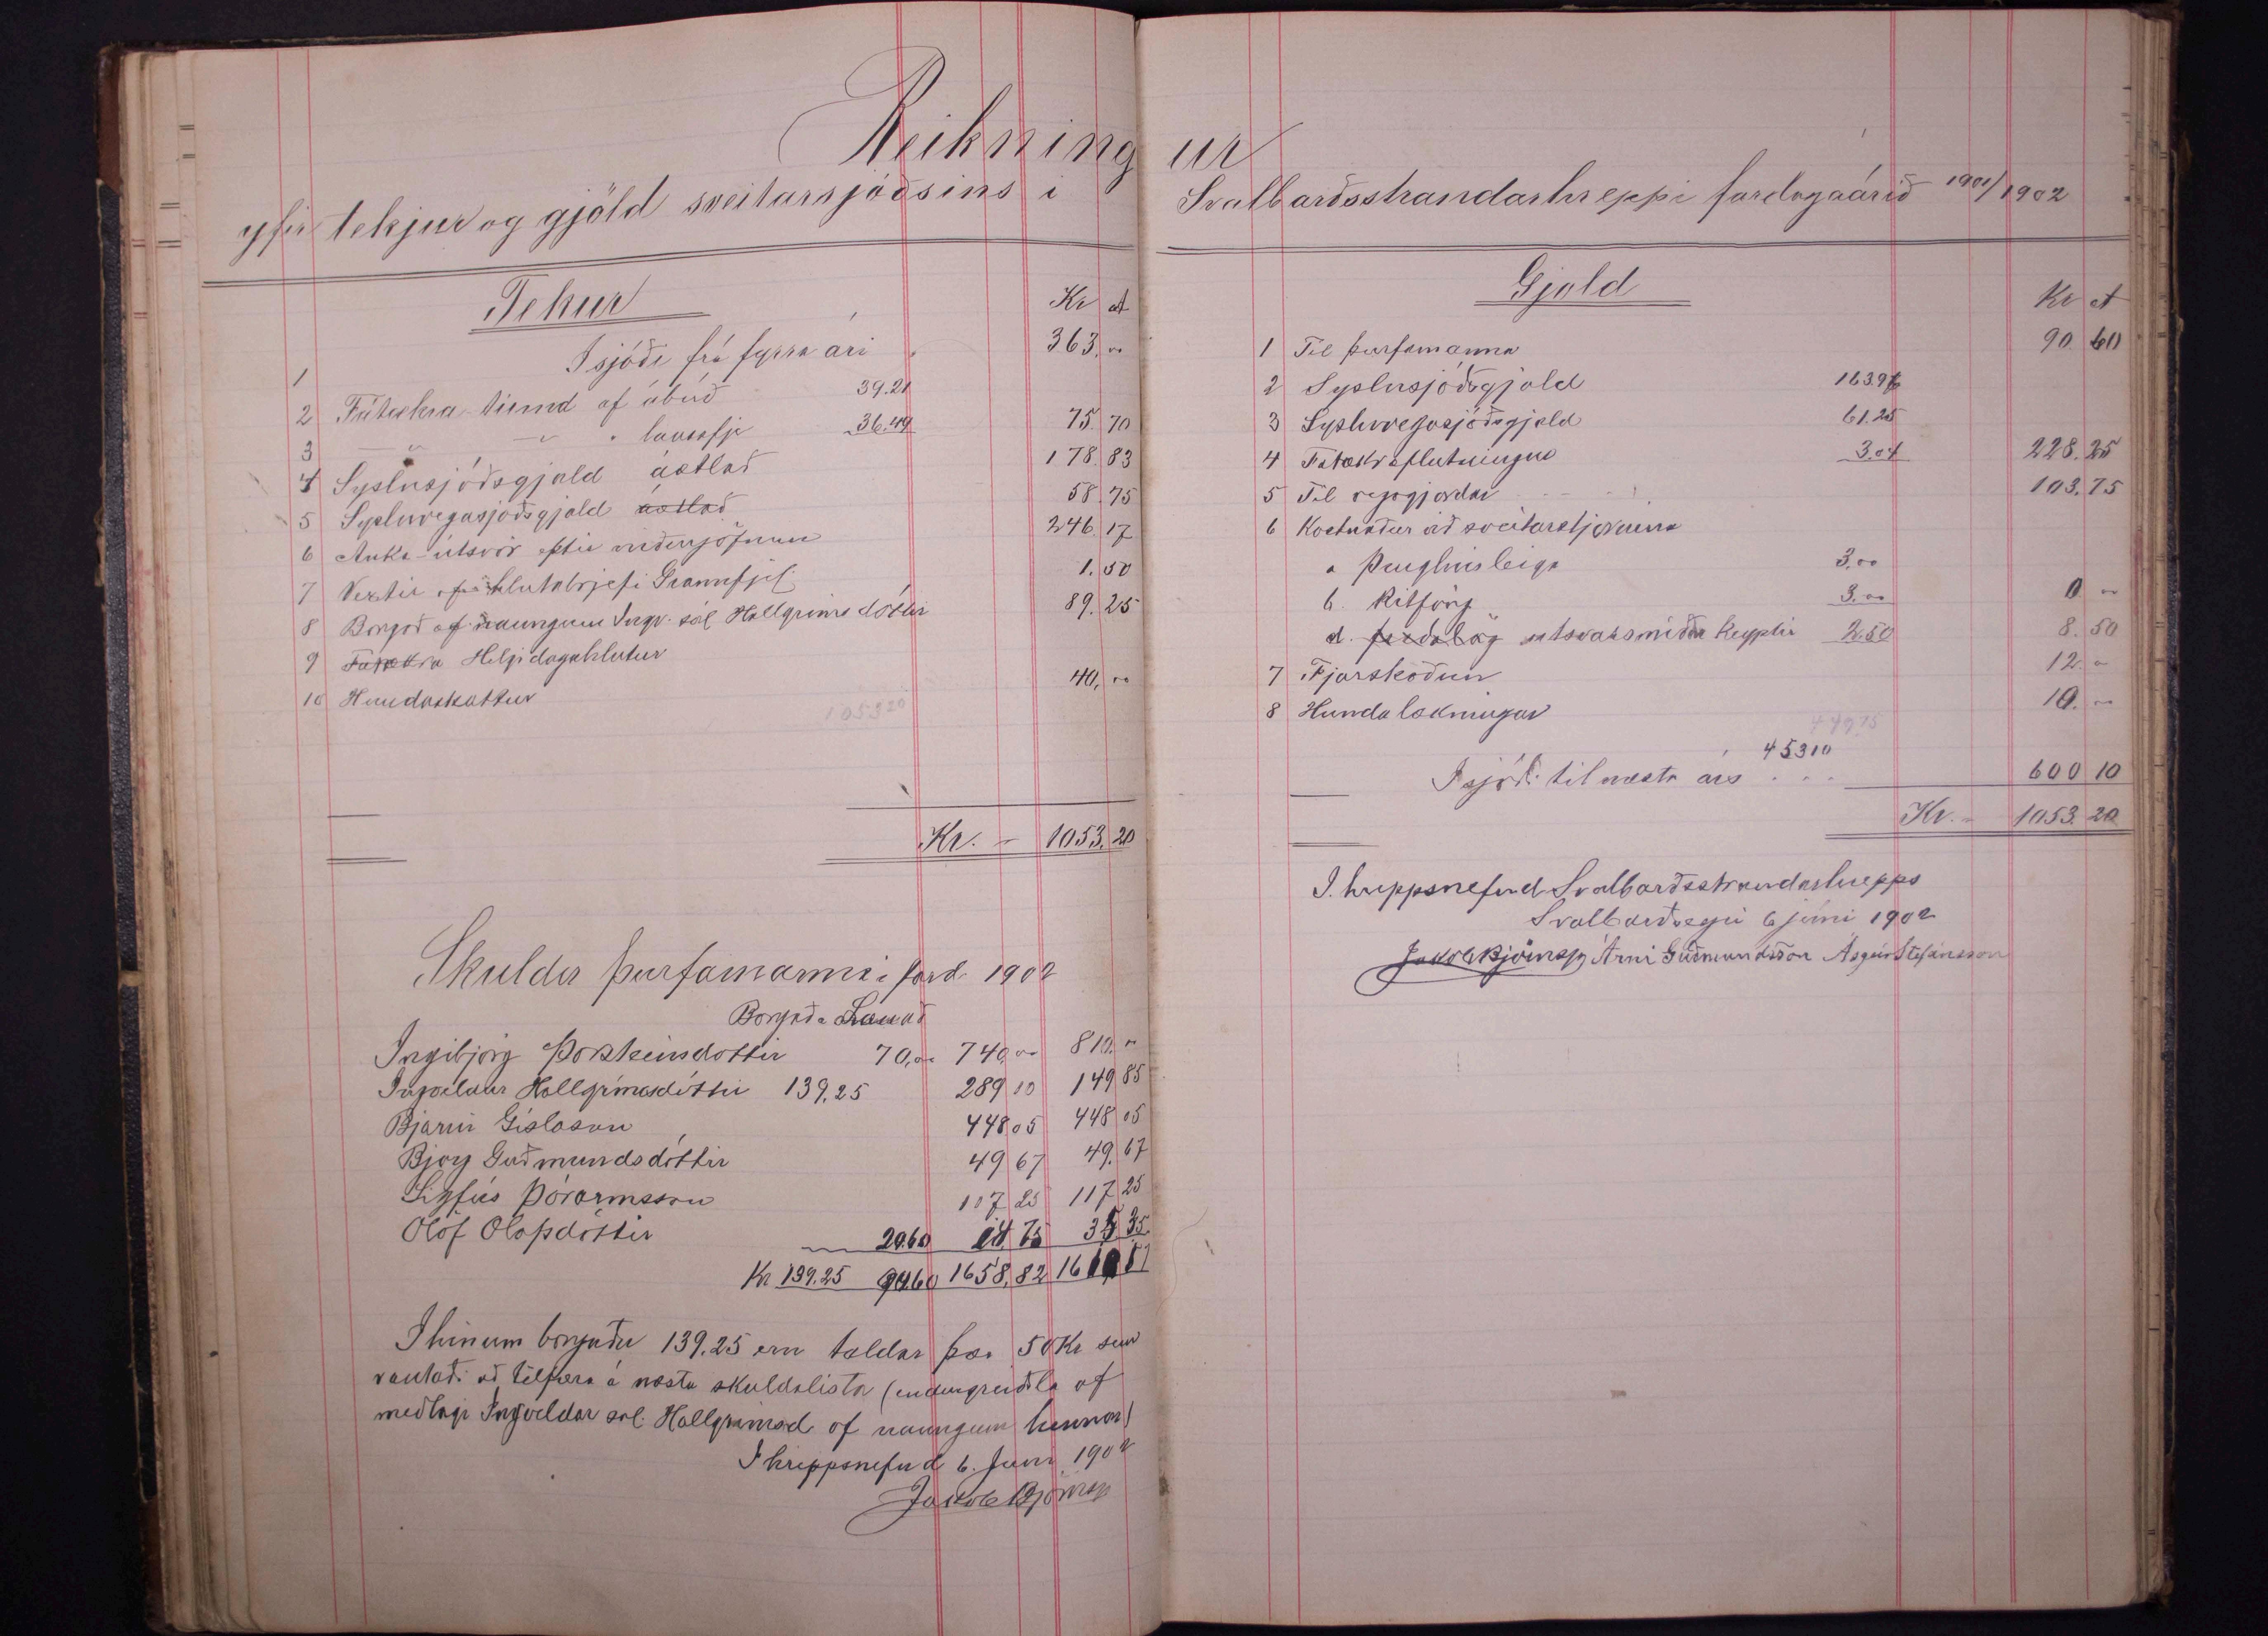 Reikningur
yfir tekjur og gjöld sveitarsjóðsins í Svalbarðsstrandarhreppi fardagaárið 1901/1902
Tekur
Kr A
1 Í sjóði frá fyrra ári 363,00
2 Fátækra-tíund af ábúð 39.21
3 " — " lausafje 36.49 75.70
4 Syslusjóðsgjald áætlað 178.83
5 Sysluvegasjóðsgjald áætlað 58.75
6 Auka-útsvör eptir niðurjöfnun 246.17
7 Vextir af hlutabrjefi Gránufjel. 1.50
8 Borgað af náungum Ingv. sál Hallgrímsdóttir 89.25
9 Fátækra Helgidagahlutur
10 Hundaskattur 40,00
105320
Kr. - 1053.20
Skuldir þurfamanna í fard. 1902
Borgað Lánað
Ingibjörg Þorsteinsdottir 70,00 740,00 810,00
Ingveldur Hallgrímsdóttir 139.25 289 10 149 85
Bjarni Gíslason 448 05 448 05
Björg Guðmundsdóttir 49 67 49.67
Sigfús Þórarinsson 117 25 117 25
Ólöf Olafsdóttir 20.60 14.75 35 35
Kr 139.25 90.60 1658.82
Í hinum borguðu 139.25 eru taldar þær 50 Kr sem
vantaði að tilfæra á næsta skuldalista (endurgreiðsla af
meðlagi Ingveldar sál. Hallgrímsd af náungum hennar)
Í hreppsnefnd 6. Juni 1902
Jakob Björnss
Gjöld
Kr A
1 Til þurfamanna 90.60
2 Syslusjóðsgjald 163.96
3 Sysluvegasjóðsgjald 61.25
4 Fátækraflutningur 3.04 228.25
5 Til vegagjörðar 103.75
6 Kostnaður við sveitarstjórnina
a Þinghúsleiga 3,00
b. Ritföng 3.00 0 00
d. útsvarsmiðar keyptir 2.50 8.50
7 Fjárskoðun 12.00
8 Hundalækningar 10.00
449.75
45310
Í sjóði til næsta árs 600 10
Kr. - 1053.20
Í hreppsnefnd Svalbarðsstrandarhrepps
Svalbarðseyri 6 júní 1902
Jakob Björnss Árni Guðmundsson Ásgeir Stefánsson